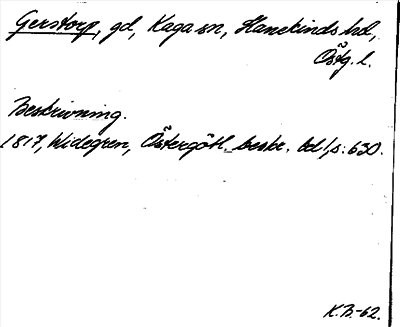 Gerstorp, gd, Kaga sn, Hanekinds hd,
Östg. l.
Beskrivning.
1817, Widegren, Östergötl. beskr. bd 1, s. 630.
K.B.-62.